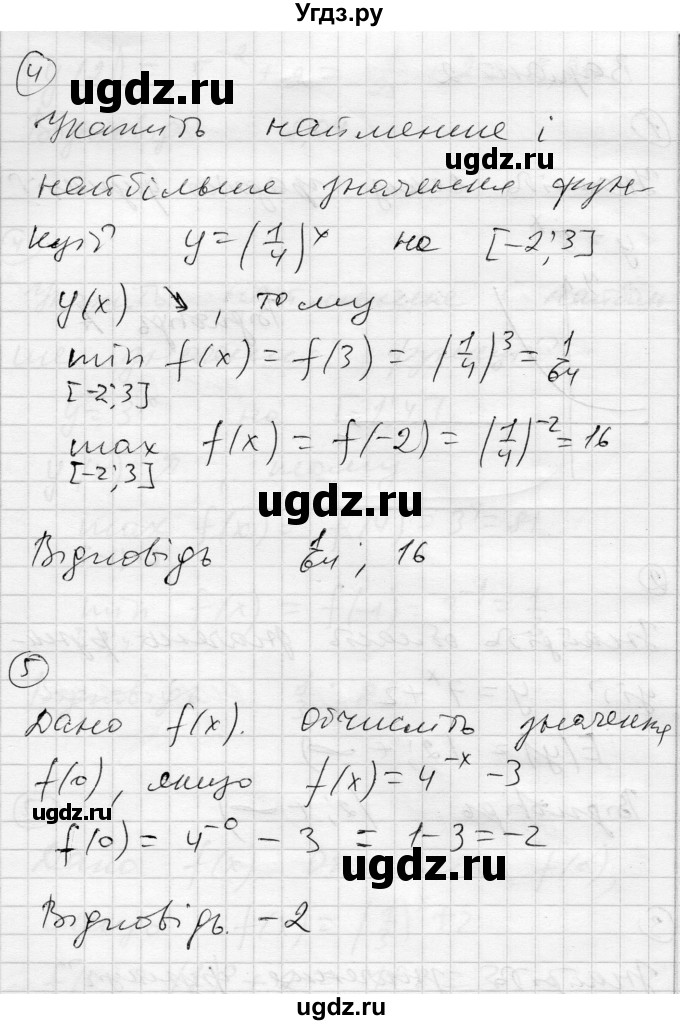 Угдз.ру
4
ugdz.ru
Укажіть найменше і
ugdz.ru
найбільше значення фун-
кції y = (1/4)^x на [-2; 3]
y(x) ↘, тому
min f(x) = f(3) = (1/4)^3 = 1/64
[-2; 3]
max f(x) = f(-2) = (1/4)^-2 = 16
[-2; 3]
ugdz.ru
Відповідь 1/64; 16
5
Дано f(x). Обчисліть значення
f(0), якщо f(x) = 4^-x - 3
ugdz.ru
f(0) = 4^-0 - 3 = 1 - 3 = -2
ugdz.ru
Відповідь. -2
ugdz.ru